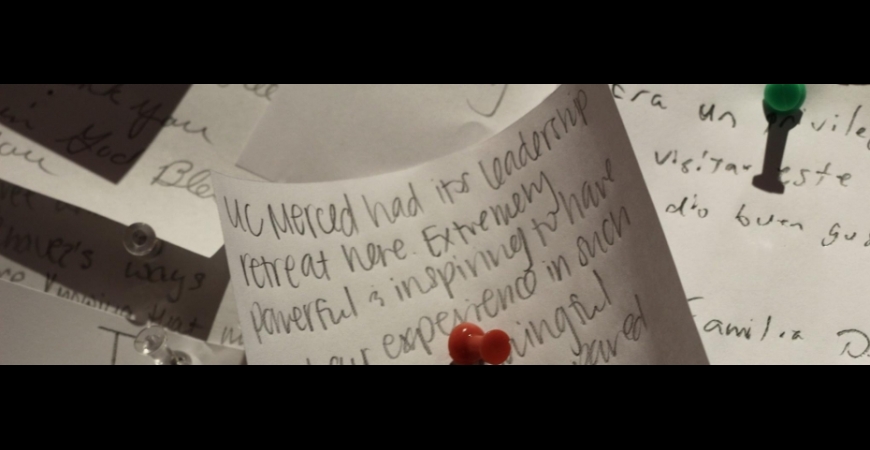 you
in God
you
Ble
Chavez's ways
that
UC Merced had its leadership
retreat here. Extremely
powerful & inspiring to have
our experience in such
ingful
ared
era un
visitar este
dio buen
Familia D